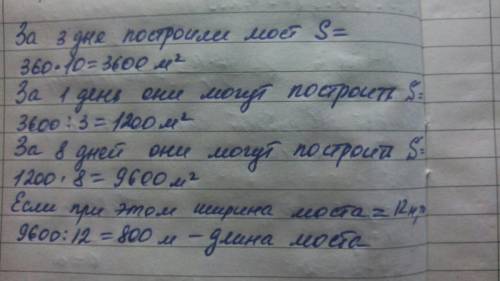 За 3 дне построили мост S=
360·10=3600 м²
За 1 день они могут построить S=
3600:3=1200 м²
За 8 дней они могут построить S=
1200·8=9600 м²
Если при этом ширина моста = 12 м, то
9600:12=800 м - длина моста